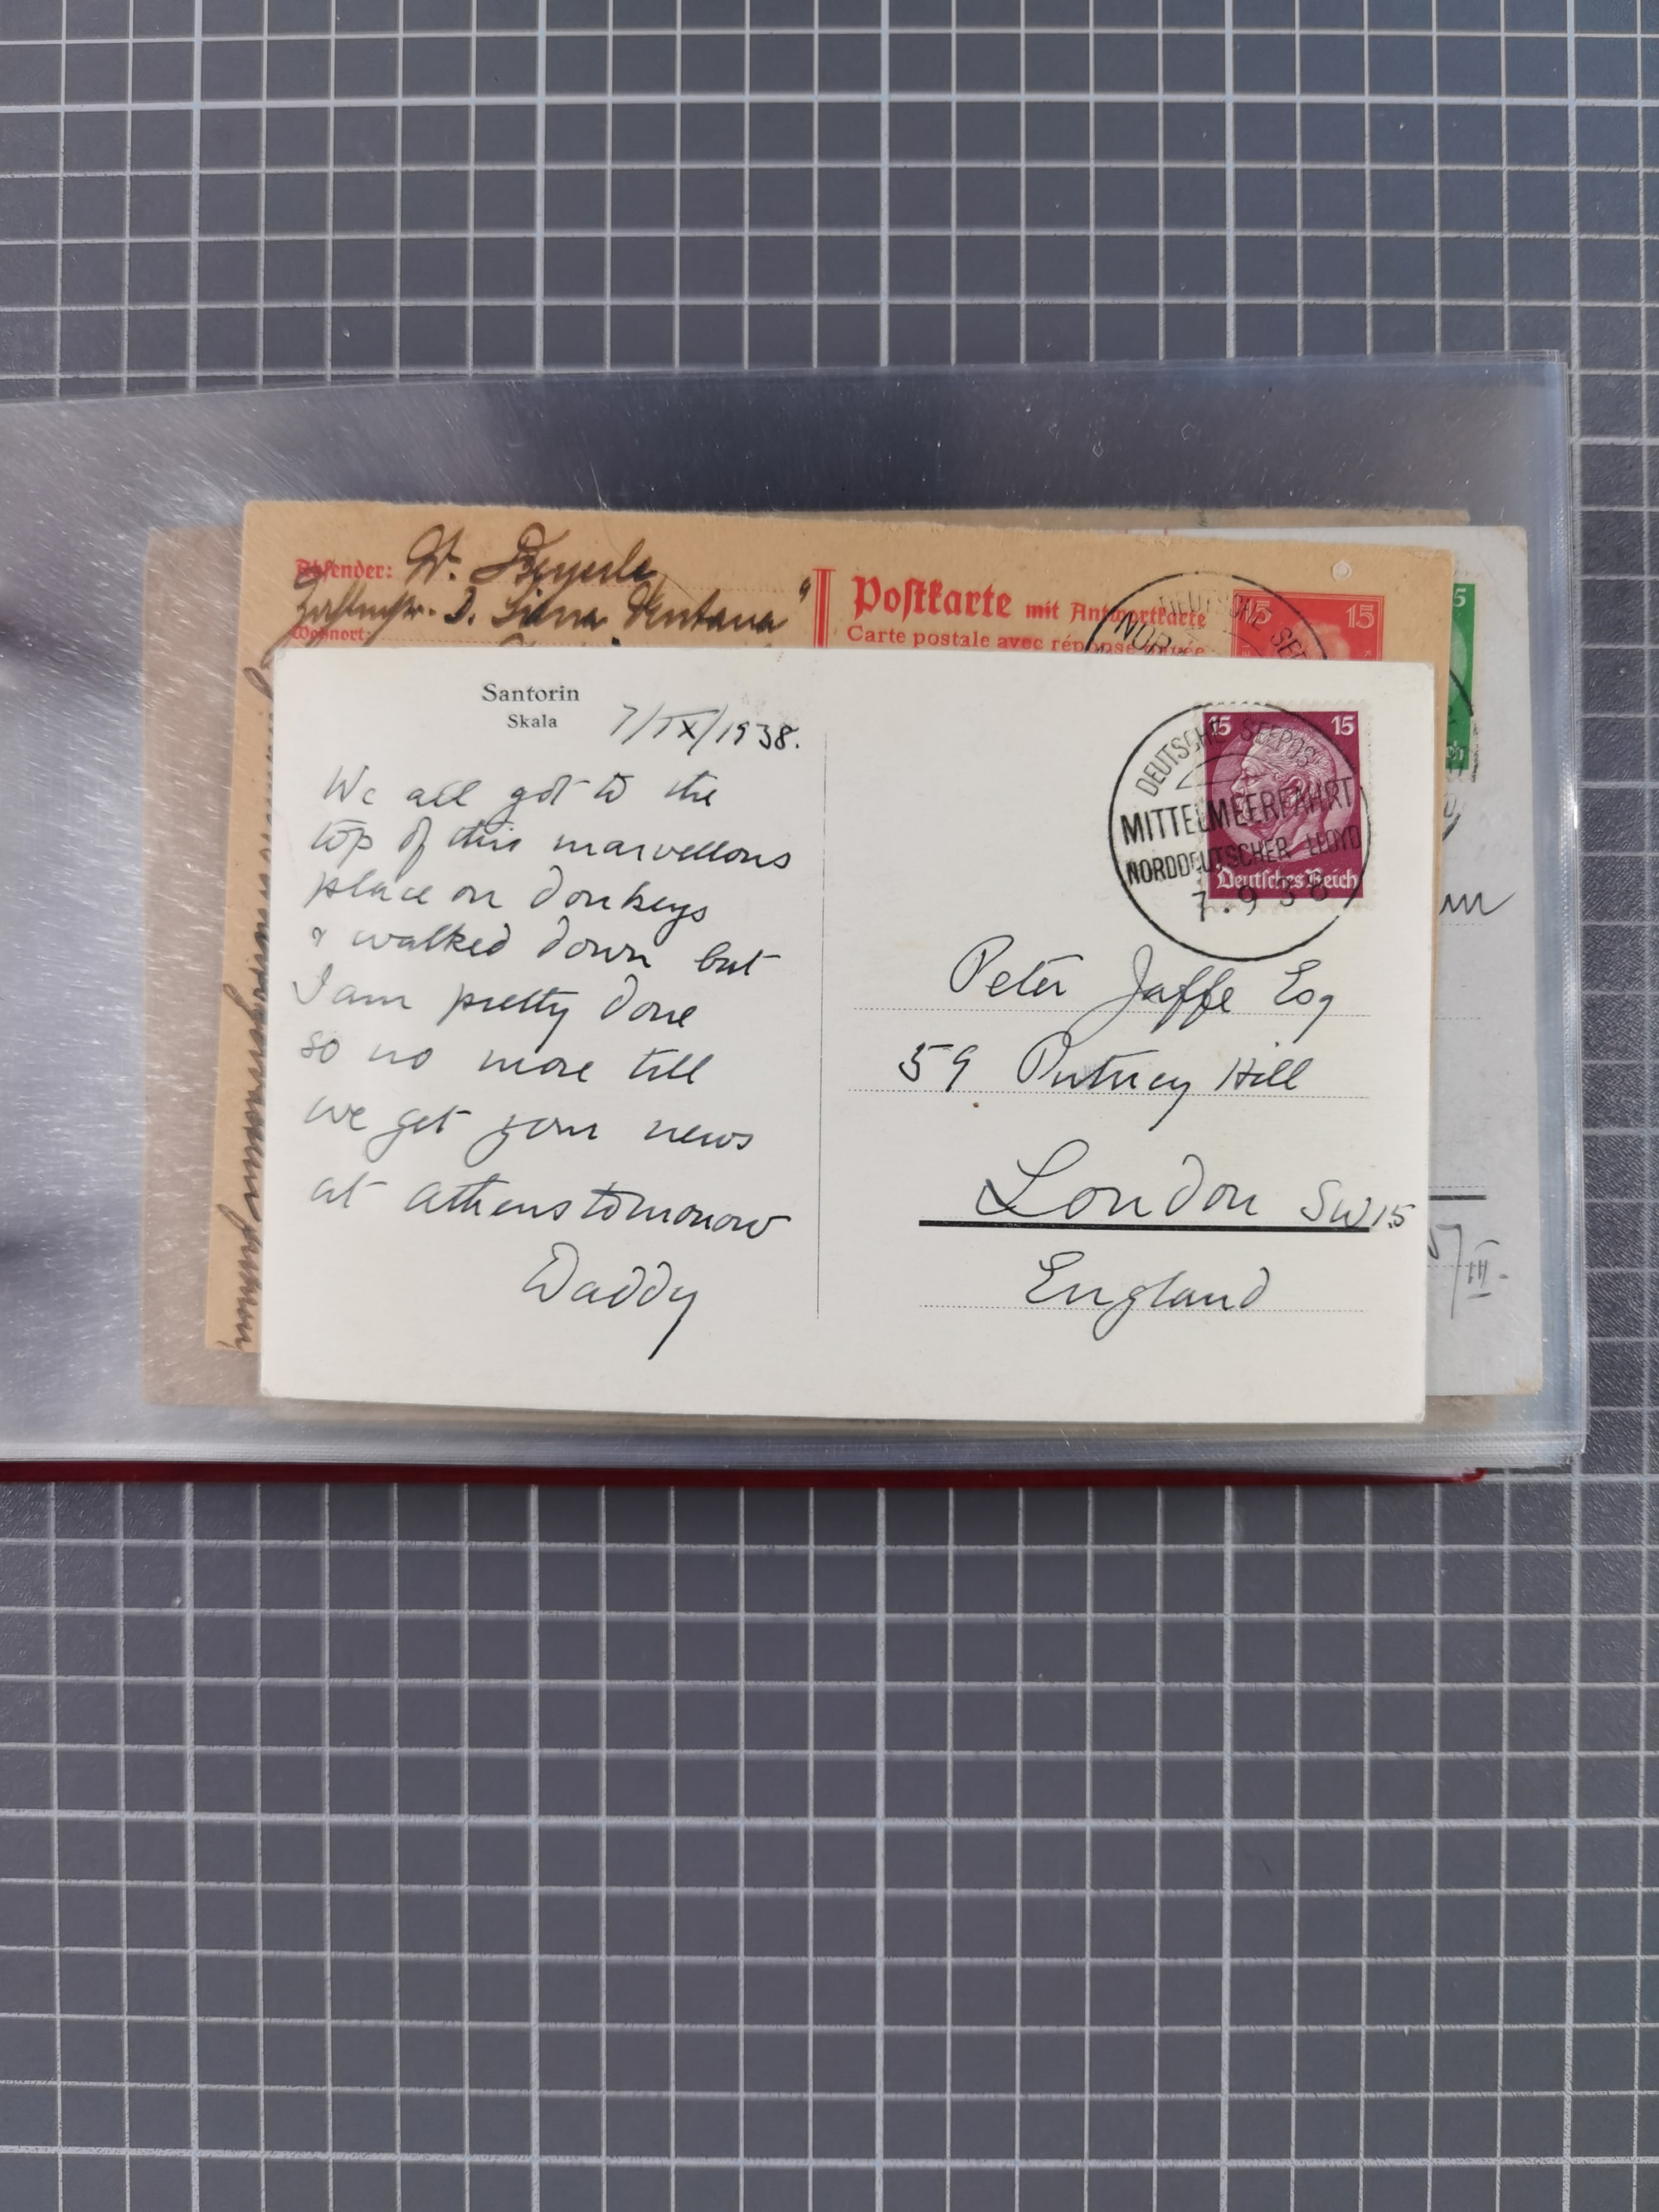 Absender: W. Beyerle
"
Wohnort:
Postkarte mit Antwortkarte
Carte postale avec réponse payée
DEUTSCHE SEE
NOR
15 15
5
Santorin
Skala
7/IX/1938.
We all got to the
top of this marvellous
place on donkeys
& walked down but
I am pretty done
so no more till
we get your news
at Athens tomorrow
Daddy
15 15
Deutsches Reich
DEUTSCHE SEEPOST
MITTELMEERFAHRT
NORDDEUTSCHER LLOYD
7.9 38
Peter Jaffe Esq
59 Putney Hill
London SW15
England
III.